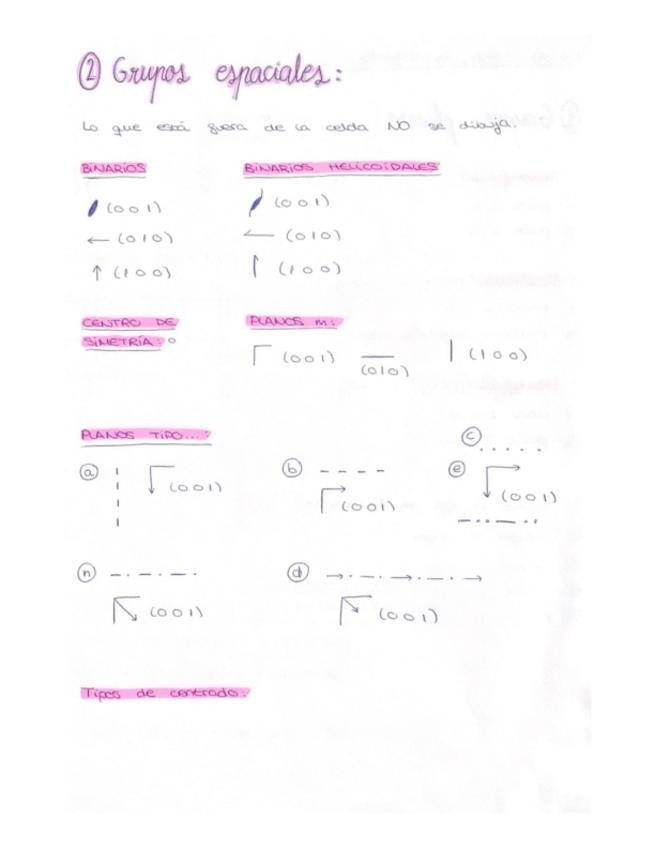 ② Grupos espaciales:
Lo que está fuera de la celda NO se dibuja.
BINARIOS
BINARIOS HELICOIDALES
(001)
(001)
← (010)
(010)
↑ (100)
(100)
CENTRO DE
SIMETRÍA: o
PLANOS m:
(001)
(010)
(100)
PLANOS TIPO...:
ⓐ
(001)
ⓑ
(001)
ⓒ
ⓔ
(001)
ⓝ
(001)
ⓓ
(001)
Tipos de centrado: